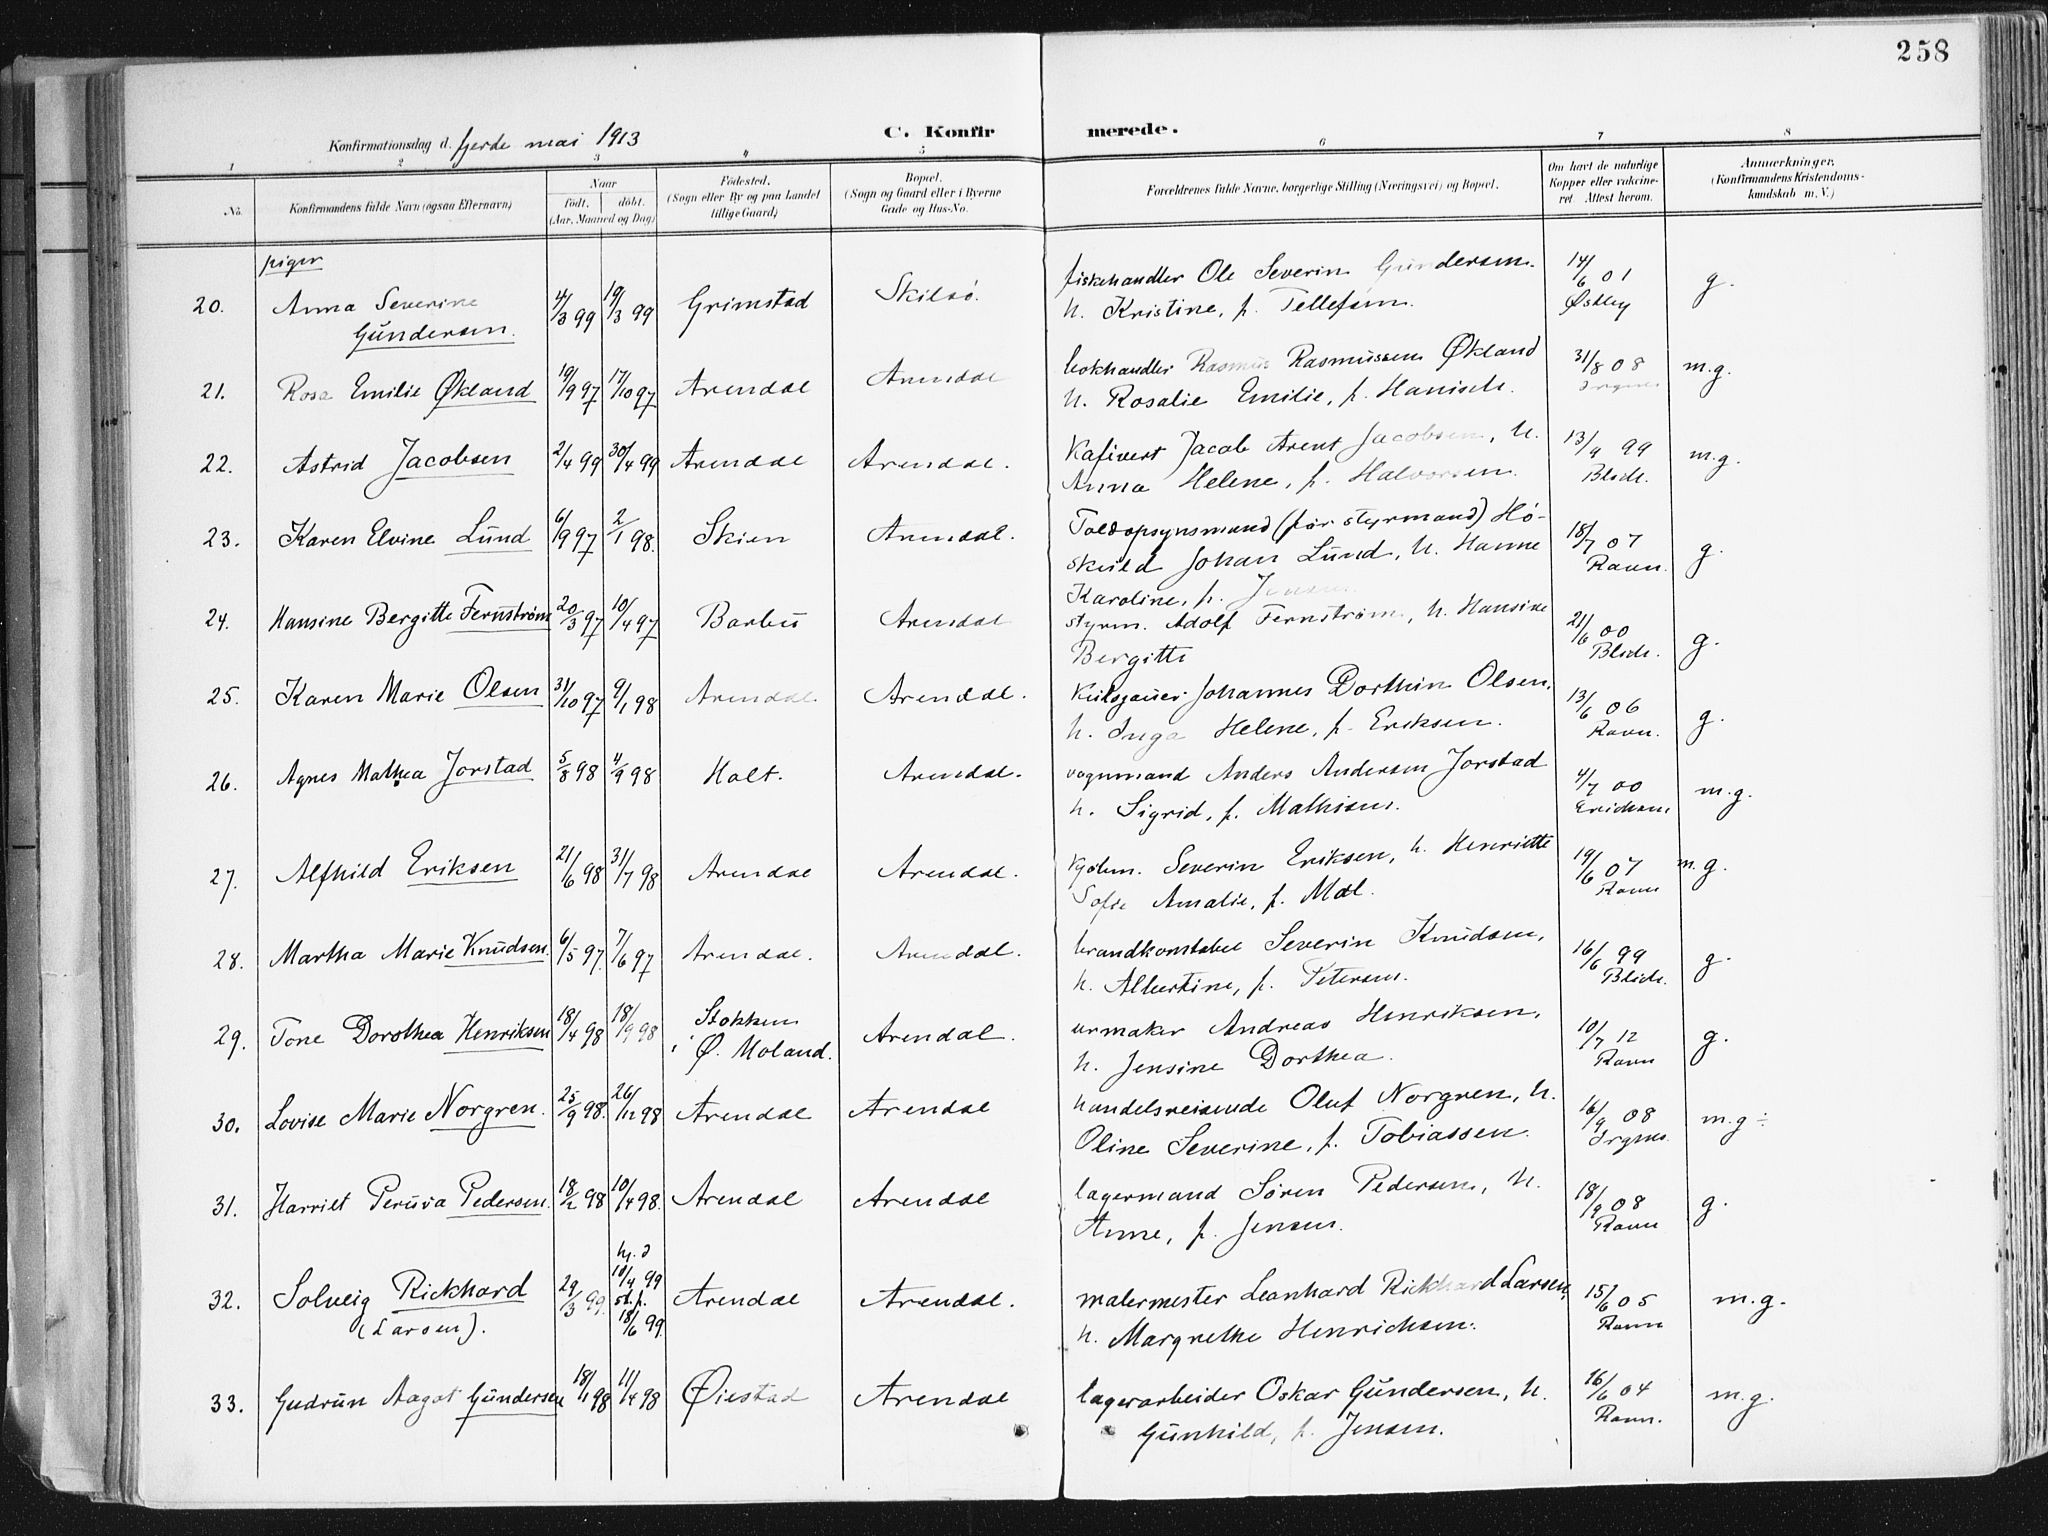 258
Konfirmationsdag d. fjerde mai 1913
C. Konfirmerede.
1 2 3 4 5 6 7 8
No. Konfirmandens fulde Navn (ogsaa Efternavn) Naar födt. döbt. (Aar, Maaned og Dag)
Födested. (Sogn eller By og paa Landet tillige Gaard)
Bopæl. (Sogn og Gaard eller i Byerne Gade og Hus-No.
Forældrenes fulde Navne, borgerlige Stilling (Næringsvei) og Bopæl.
Om havt de naturlige Kopper eller vakcineret. Attest herom.
Anmærkninger. (Konfirmandens Kristendomskundskab m. V.)
piger
20. Anna Severine Gundersen. 4/3 99 19/3 99 Grimstad Skilsø. fiskehandler Ole Severin Gundersen. h. Kristine, f. Tellefsen. 14/6 01 Østby g.
21. Rosa Emilie Økland 19/9 97 17/10 97 Arendal Arendal bokhandler Rasmus Rasmussen Økland h. Rosalie Emilie, f. Hanisch. 31/8 08 m.g.
22. Astrid Jacobsen 2/4 99 30/4 99 Arendal Arendal. Kafivert Jacob Arent Jacobsen, h. Anna Helene, f. Halvorsen. 13/9 99 Blich. m.g.
23. Karen Elvine Lund 6/9 97 2/1 98. Skien Arendal. Toldopsynsmand (før styrmand) Høskuld Johan Lund, h. Hanne Karoline, f. Jensen. 18/7 07 Ravn. g.
24. Hansine Bergitte Fernstrøm 20/3 97 10/4 97 Barbu Arendal styrm. Adolf Fernstrøm, h. Hansine Bergitte 21/6 00 Blich. g.
25. Karen Marie Olsen 31/10 97 9/1 98 Arendal. Arendal. Johannes Dorthin Olsen, h. Inga Helene, f. Eriksen. 13/6 06 Ravn. g.
26. Agnes Mathea Jorstad 5/8 98 4/9 98 Holt. Arendal. vognmand Anders Andersen Jorstad h. Sigrid, f. Mathisen. 4/7 00 Erichsen m.g.
27. Alfhild Eriksen 21/6 98 31/7 98 Arendal Arendal. kjøbm. Severin Eriksen, h. Henriette Sofie Amalie, f. Mal. 19/6 07 Ravn m.g.
28. Martha Marie Knudsen. 6/5 97. 7/6 97 Arendal. Arendal. brandkonstabel Severin Knudsen, h. Albertine, f. Petersen. 16/6 99 Blich. g.
29. Tone Dorothea Henriksen 18/4 98 18/9 98 Stokken i Ø. Moland. Arendal. urmaker Andreas Henriksen, h. Jensine Dorthea. 10/7 12 Ravn g.
30. Lovise Marie Norgren. 25/9 98. 26/12 98 Arendal Arendal handelsreisende Oluf Norgren, h. Oline Severine, f. Tobiassen. 16/9 08 m.g ÷
31. Harriet Peruva Pedersen. 18/2 98 10/4 98. Arendal Arendal lagermand Søren Pedersen, h. Anne, f. Jensen. 18/9 08 Ravn g.
32. Solveig Rickhard (Larsen). 29/3 99. hj. d 10/4 99 st. f. 18/6 99. Arendal Arendal. malermester Leonhard Rickhard Larsen, h. Margrethe Henrichsen. 15/6 05 Ravn m.g.
33. Gudrun Aagot Gundersen 18/1 98 11/4 98 Øiestad Arendal lagerarbeider Oskar Gundersen, h. Gunhild, f. Jensen. 16/6 04 Ravn. m.g.